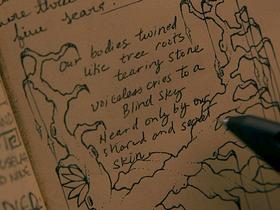 more three
five scars.
Our bodies twined
like tree roots
tearing stone
voiceless cries to a
Blind sky
Heard only by our
shared and secret
skin